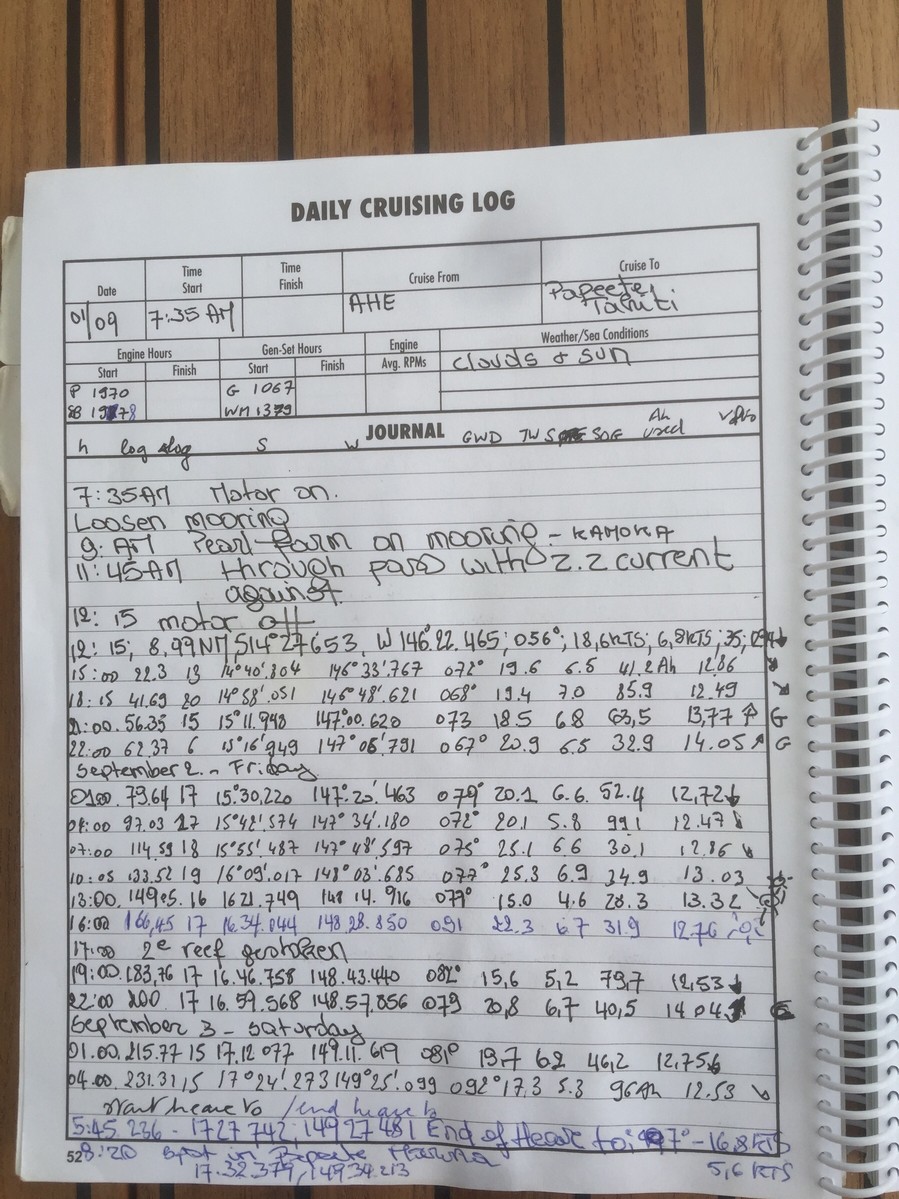 DAILY CRUISING LOG
Date Time Start Time Finish Cruise From Cruise To
01/09 7:35 AM AHE Papeete Tahiti
Engine Hours Gen-Set Hours Engine Avg. RPMs Weather/Sea Conditions
Start Finish Start Finish clouds & sun
P 1970 G 1067
SB 1978 WM 1379
JOURNAL
h log log S W GWD TWS SOG Ah used
7:35AM Motor on.
Loosen mooring
9: AM Pearl-farm on mooring - KAMOKA
11:45AM through pass with 2.2 current
against.
12:15 motor off
12:15; 8,99NM S14°27653, W 146°22.465; 056°; 18,6KTS; 6,8KTS; 35;
15:00 22.3 13 14°40'.804 146°33'.767 072° 19.6 6.5 41,2Ah 12.86
18:15 41.69 20 14°58'.051 146°48'.621 068° 19.4 7.0 85.9 12.49
21:00. 56.35 15 15°11.948 147°00.620 073 18.5 6.8 63,5 13,77 G
22:00 62.37 6 15°16'949 147°05'.791 067° 20.9 6.5 32.9 14.05 G
September 2. - Friday
0100. 79.64 17 15°30,220 147°.25'.463 079° 20.1 6.6. 52.4 12,72
04:00 97.03 17 15°42'.574 147°34'.180 072° 20.1 5.8 99.1 12.47
07:00 114.59 18 15°55'.487 147°48'.597 075° 25.1 6.6 30.1 12.86
10:05 133.52 19 16°09'.017 148°03'.685 077° 25.3 6.9 34.9 13.03
13:00. 16 1621.749 148 14.916 079° 15.0 4.6 28.3 13.32
16:00 166,45 17 16.34.044 148.28.850 091 22.3 6.7 31.9 12.76
17:00 2e reef gestoken
19:00. 183,76 17 16.46.758 148.43.440 082° 15,6 5,2 79,7 12,53
22:00 200 17 16.59.568 148.57.856 079 20,8 6,7 40,5 14.04 G
September 3 - Saturday
01.00. 215.77 15 17.12 077 149.11.619 081° 19.7 6.2 46,2 12.75
04.00. 231.31 15 17°24'.273 149°25'.099 092° 17,3 5.3 96Ah 12.53
start heave to / end heave to
5:45 236 - 1727 742; 149 27 481 End of Heave to: - 16,8 KTS
52 8:20 spot in Papeete Marina
17.32.379, 149.34.213 5,6 KTS